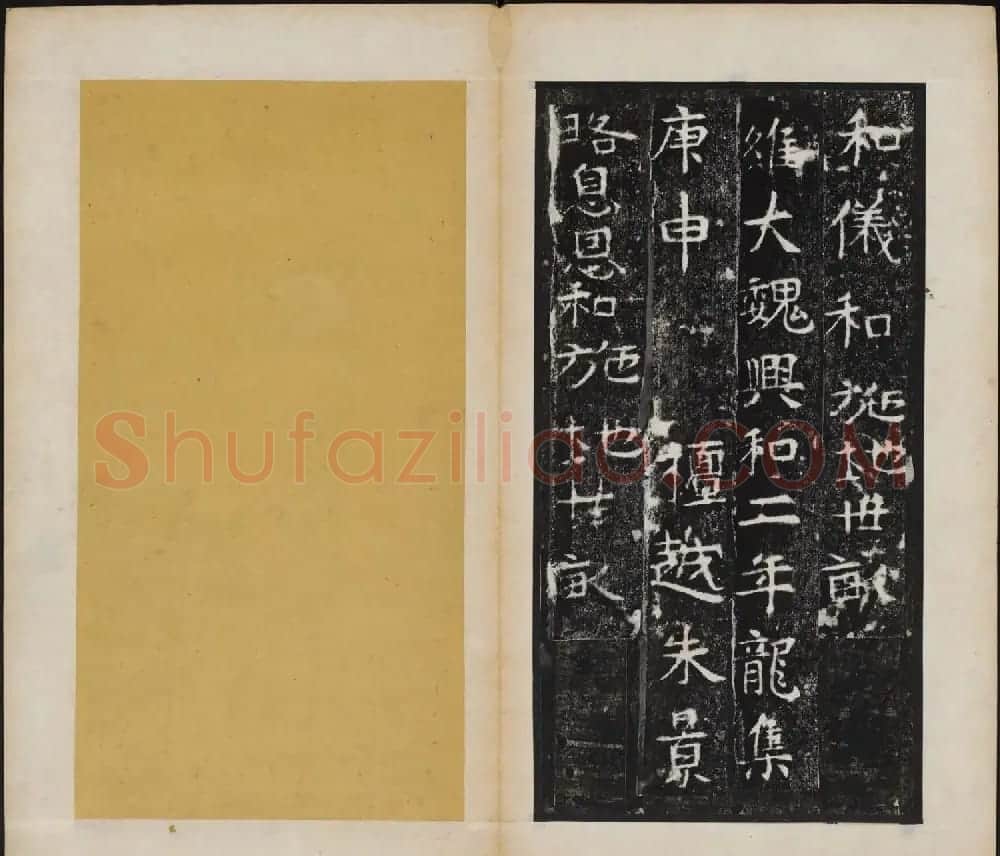 和儀和施地卌畝
維大魏興和二年龍集
庚申 檀越朱景
略息思和施地廿畝
Shufaziliao.COM